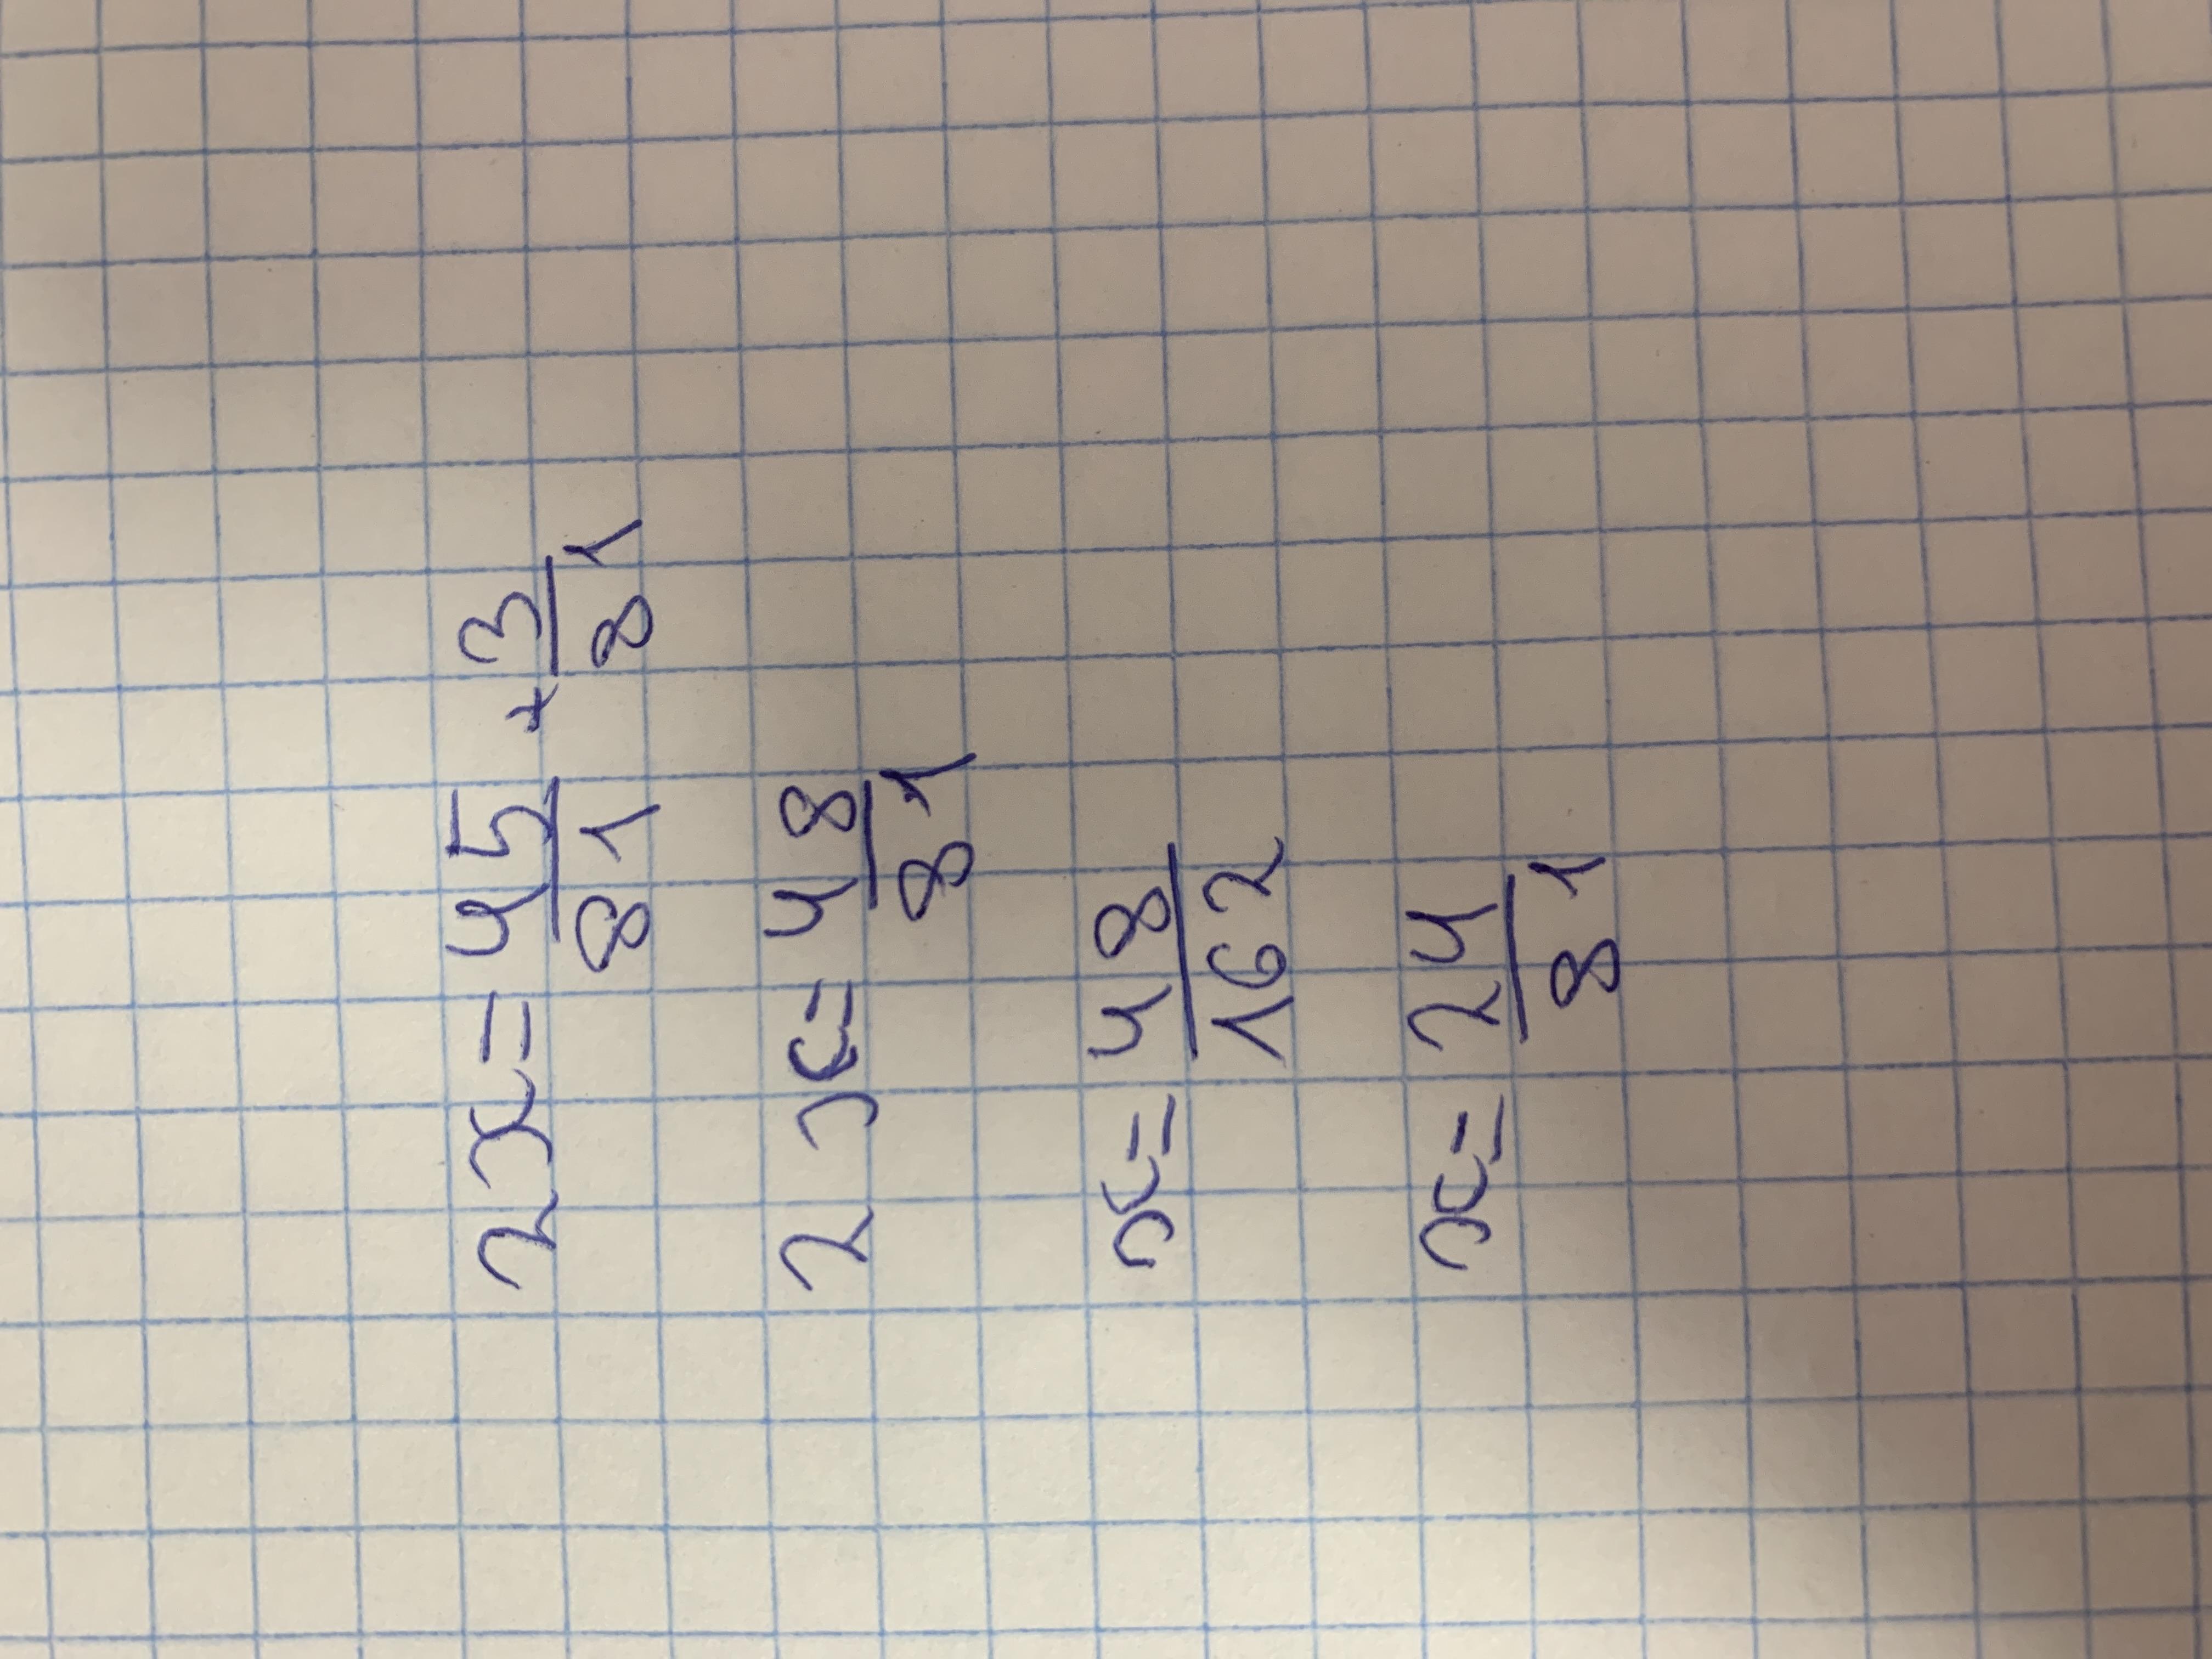 2x = 45/81 + 3/81
2x = 48/81
x = 48/162
x = 24/81